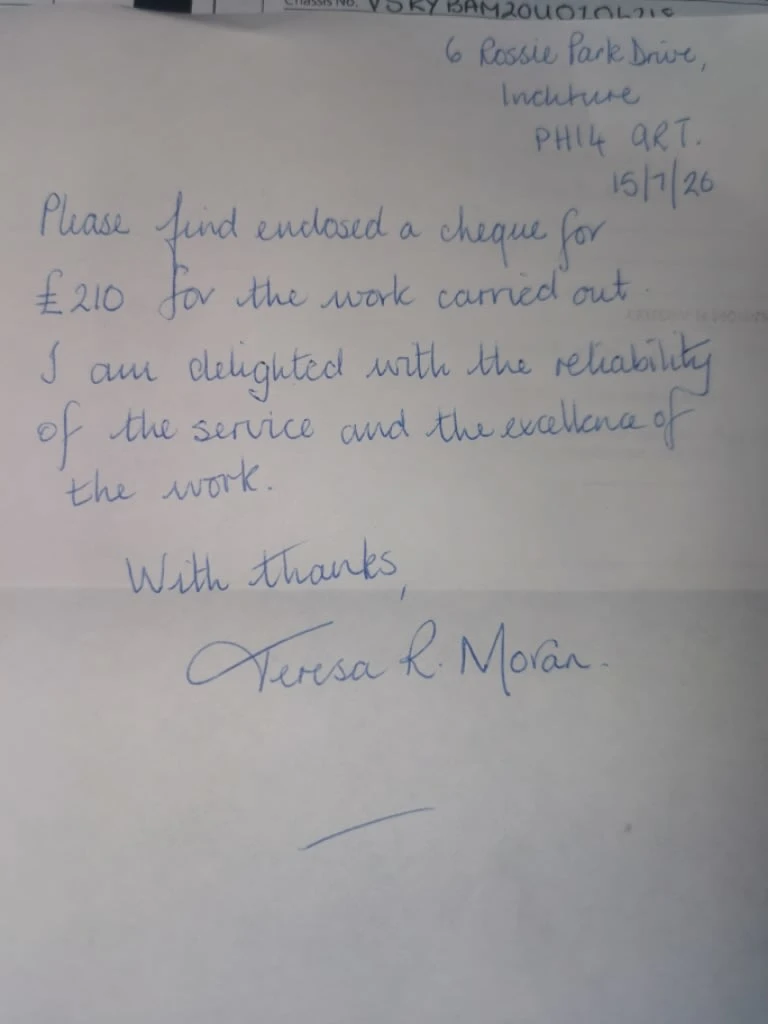 Chassis No.
6 Rossie Park Drive,
Inchture
PH14 9RT.
15/7/26
Please find enclosed a cheque for
£210 for the work carried out.
I am delighted with the reliability
of the service and the excellence of
the work.
With thanks,
Teresa R. Moran.